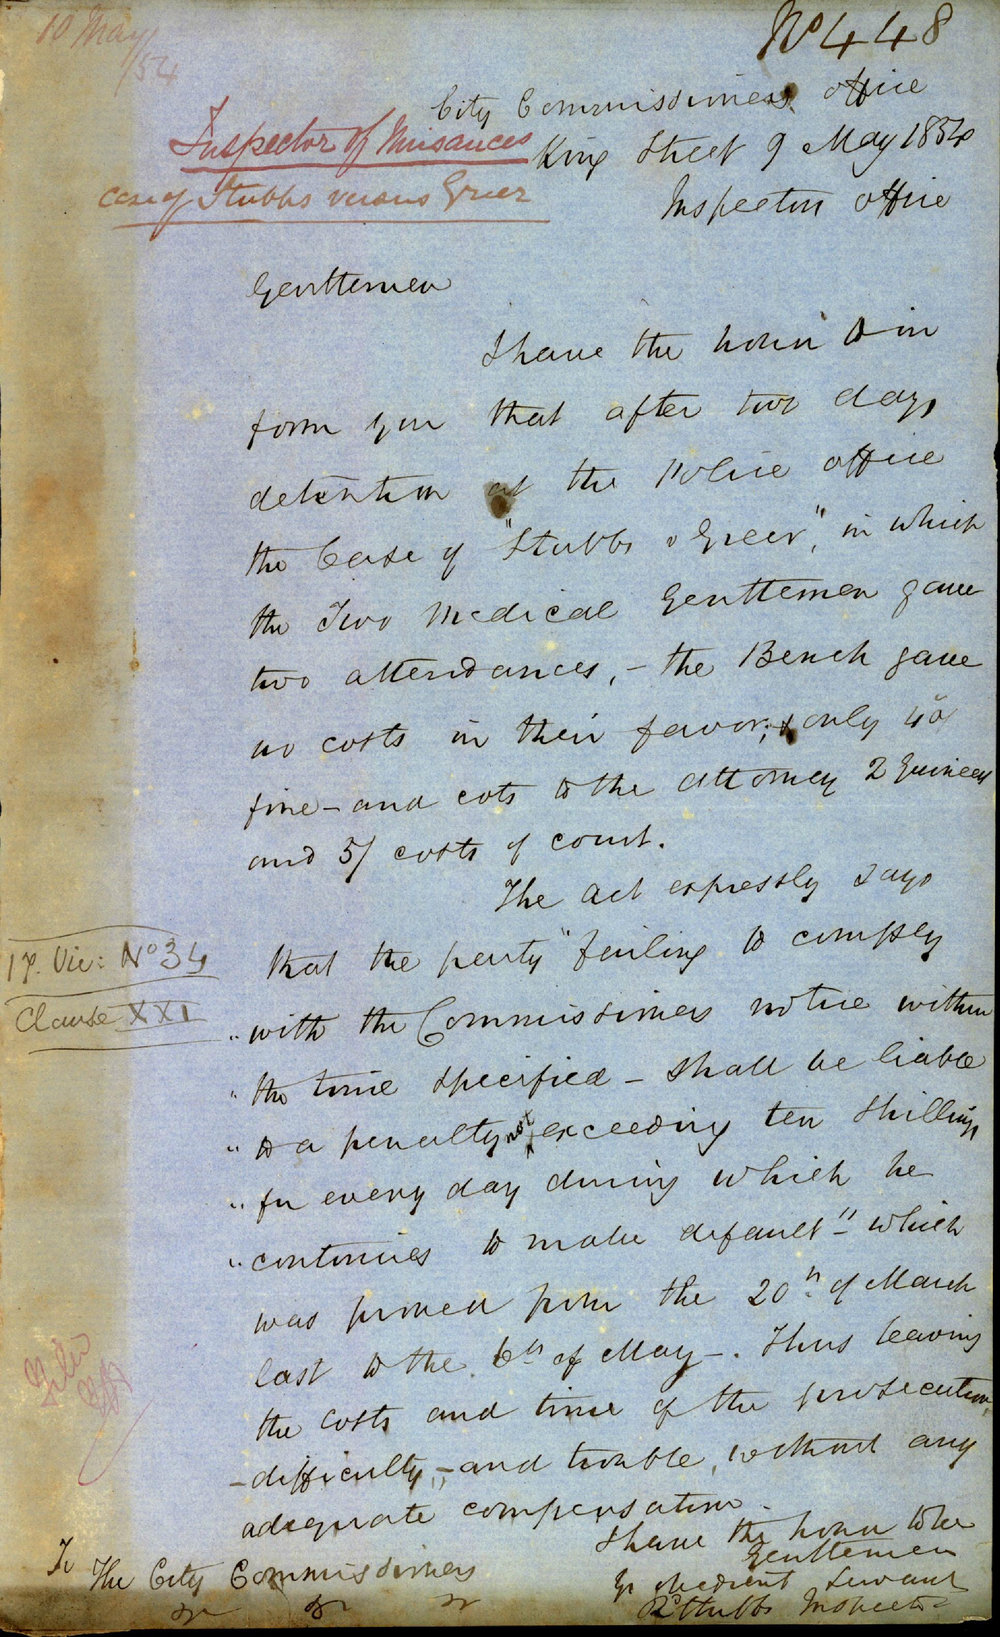 10 May
/54
No 448
City Commissioners office
Inspector of Nuisances
King Street 9 May 1854
case of Stubbs versus Greer
Inspectors office
Gentlemen
I have the honor to in
form you that after two days
detention at the Police office
the Case of "Stubbs v Greer", in which
the Two Medical Gentlemen gave
two attendances, - the Bench gave
no costs in their favor; & only 40/
fine - and cots to the attorney 2 Guineas
and 5/ costs of court.
The act expressly says
that the party "failing to comply
17. Vic: No 34
Clause XXI
"with the Commissioners notice within
"the time specified - shall be liable
"to a penalty not exceeding ten shillings
"for every day during which he
"continues to make default" - which
was proved from the 20th of March
last to the 6th of May -. Thus leaving
the costs and time of the prosecution,
- difficulty, - and trouble, without any
adequate compensation.
I have the honor to be
Gentlemen
Yr obedient Servant
R Stubbs Inspector
To The City Commissioners